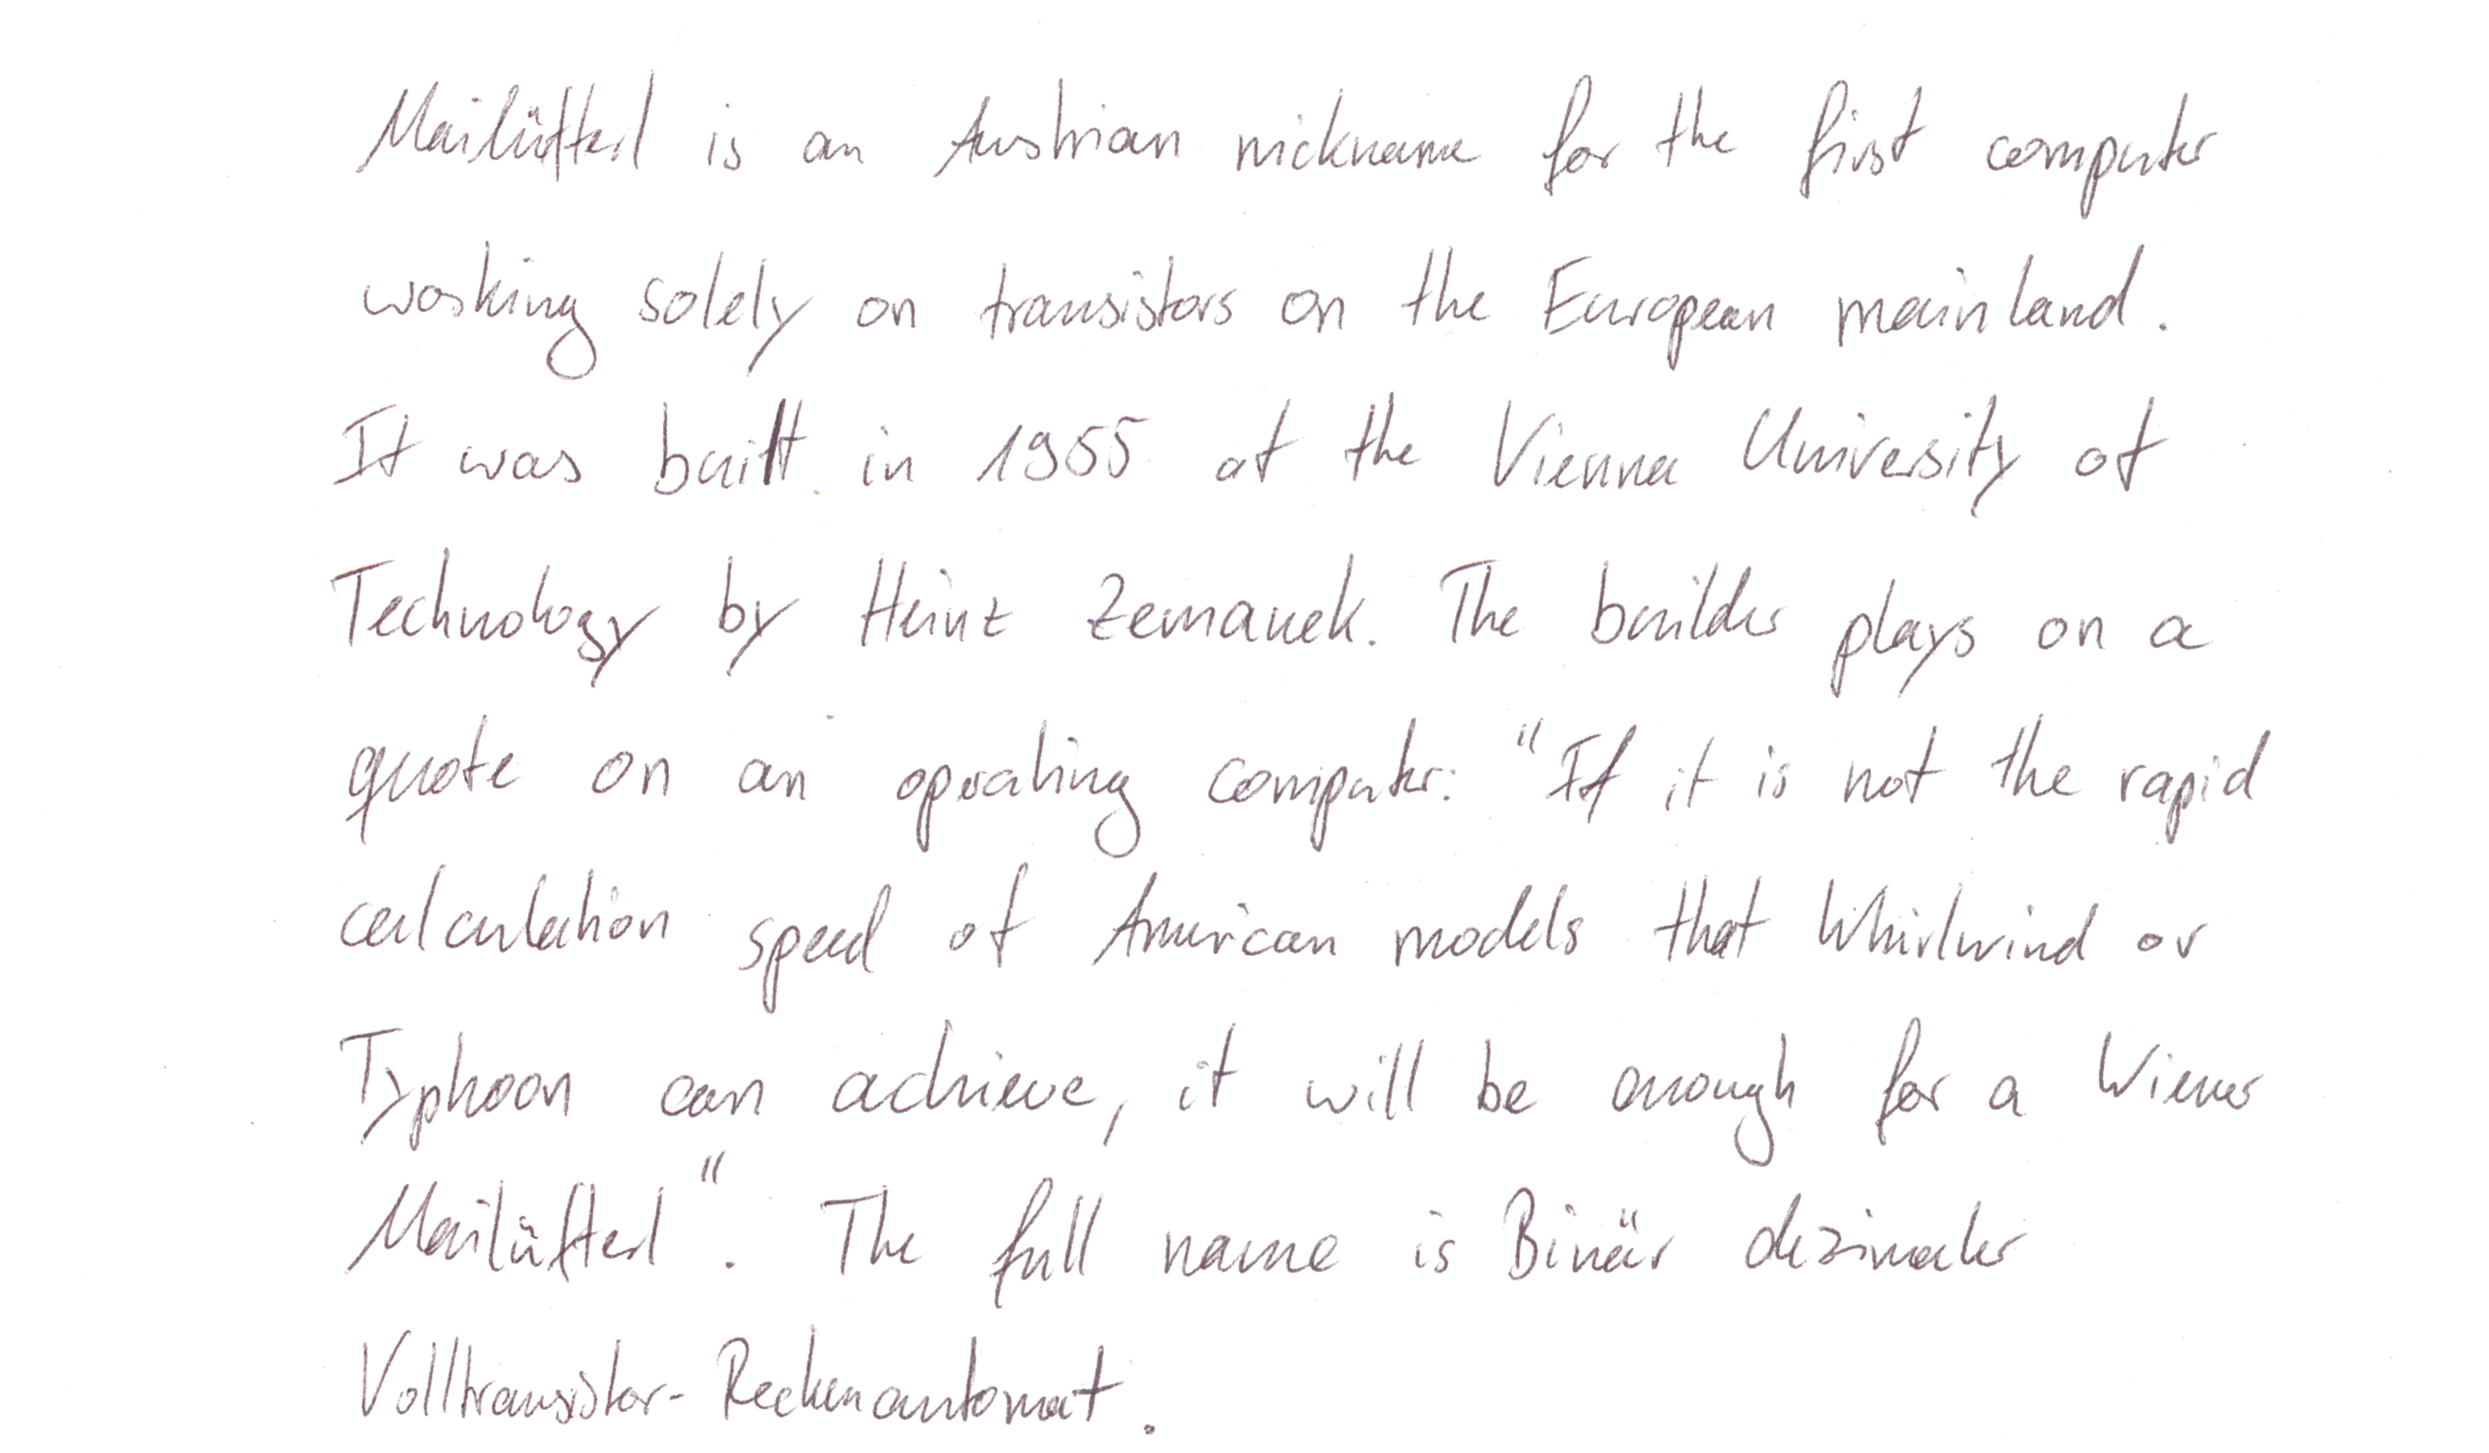 Mailüfterl is an Austrian nickname for the first computer
working solely on transistors on the European mainland.
It was built in 1955 at the Vienna University of
Technology by Heinz Zemanek. The builder plays on a
quote on an operating computer: "If it is not the rapid
calculation speed of American models that Whirlwind or
Typhoon can achieve, it will be enough for a Wiener
Mailüfterl". The full name is Binär dezimaler
Volltransistor-Rechenautomat.